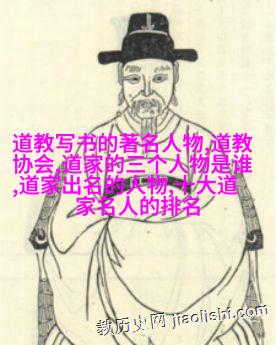 道教写书的著名人物,道教
协会,道家的三个人物是谁
,道家出名的人物,十大道
家名人的排名
教历史网 jiaolishi.com